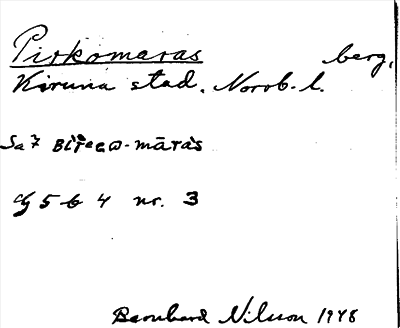 Pirkomaras berg,
Kiruna stad. Norrb. l.
Sa 7
G 5 b 4 nr. 3
Bernhard Nilsson 1948